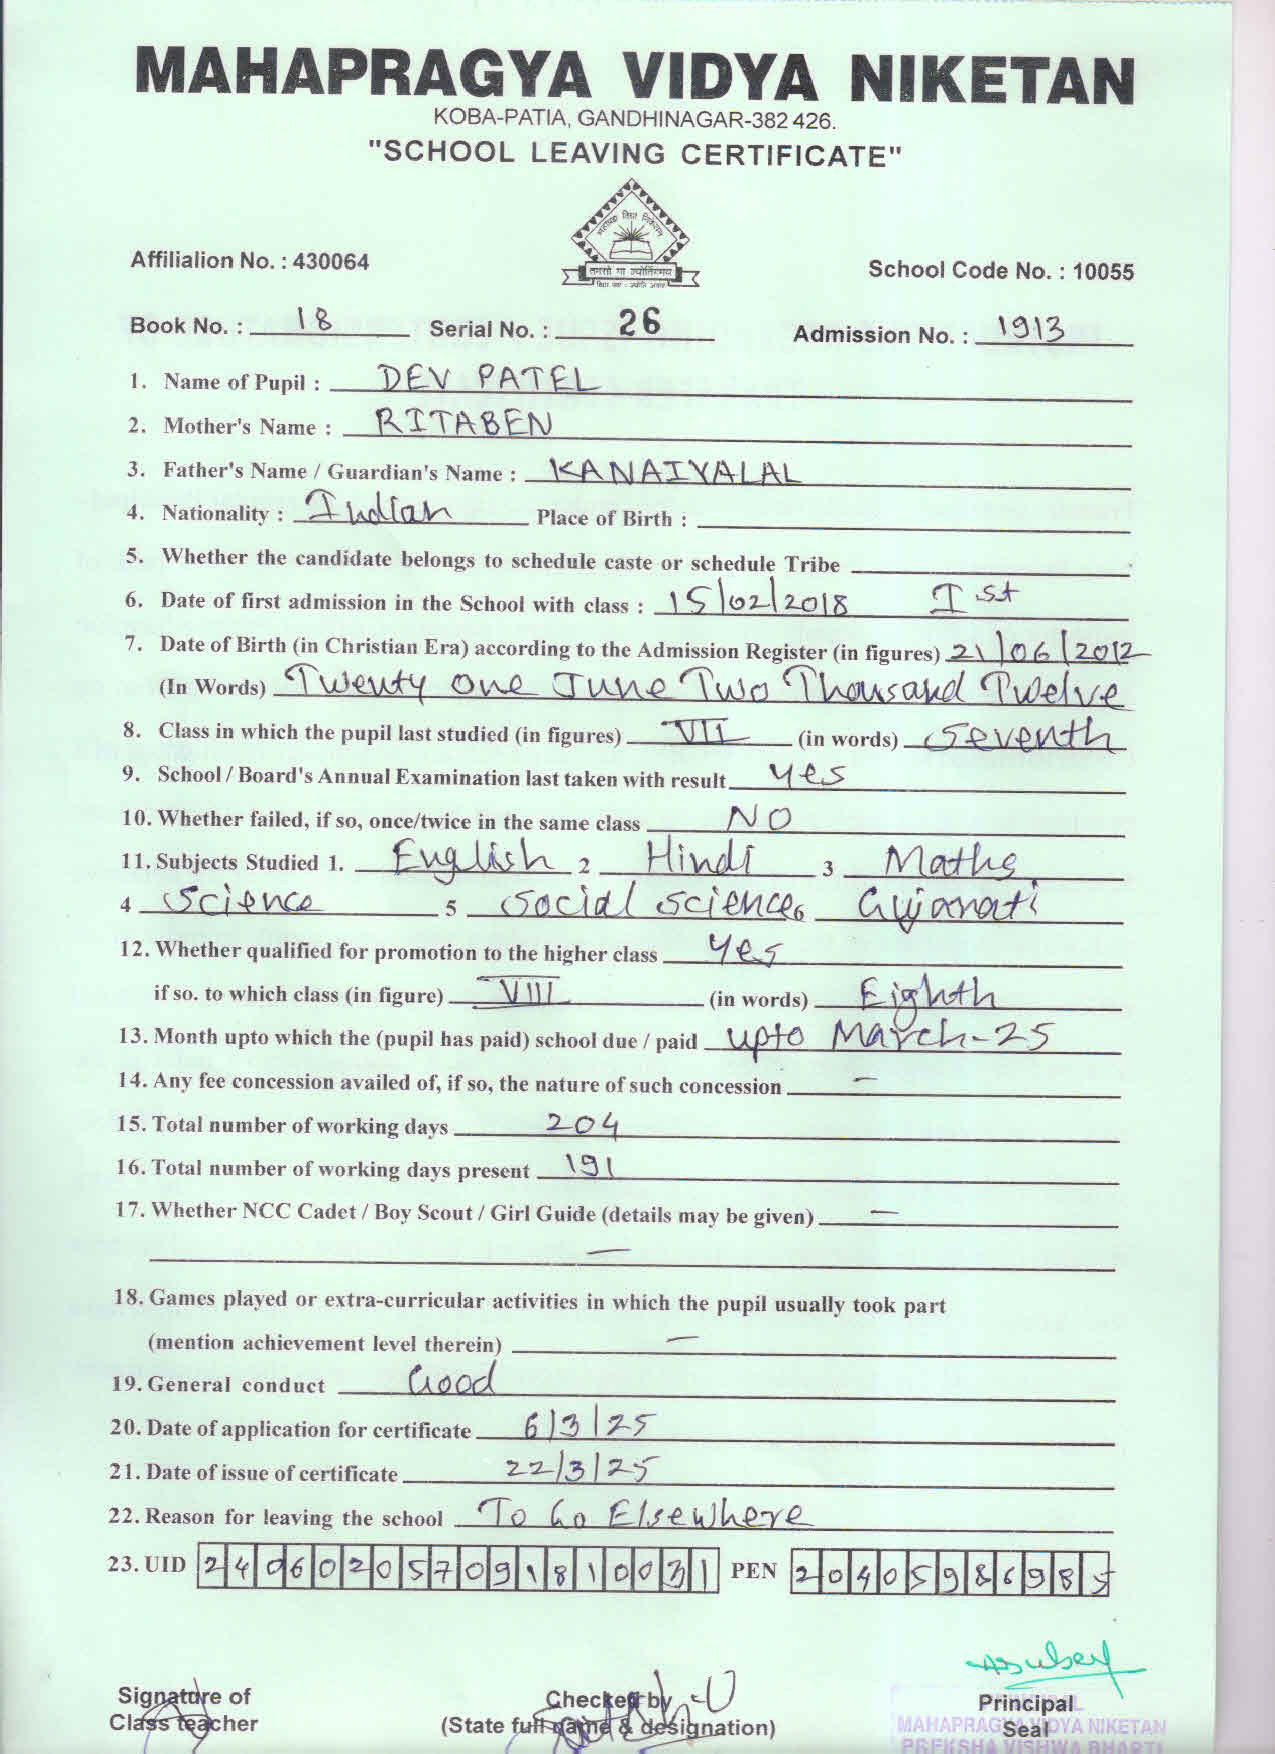 MAHAPRAGYA VIDYA NIKETAN
KOBA-PATIA, GANDHINAGAR-382 426.
"SCHOOL LEAVING CERTIFICATE"
तमसो मा ज्योतिर्गमय
Affilialion No. : 430064
School Code No. : 10055
Book No. : 18 Serial No. : 26 Admission No. : 1913
1. Name of Pupil : DEV PATEL
2. Mother's Name : RITABEN
3. Father's Name / Guardian's Name : KANAIYALAL
4. Nationality : Indian Place of Birth :
5. Whether the candidate belongs to schedule caste or schedule Tribe
6. Date of first admission in the School with class : 15/02/2018 Ist
7. Date of Birth (in Christian Era) according to the Admission Register (in figures) 21/06/2012
(In Words) Twenty one June Two Thousand Twelve
8. Class in which the pupil last studied (in figures) VII (in words) Seventh
9. School / Board's Annual Examination last taken with result yes
10. Whether failed, if so, once/twice in the same class NO
11. Subjects Studied 1. English 2 Hindi 3 Maths
4 Science 5 Social Science 6 Gujarati
12. Whether qualified for promotion to the higher class yes
if so. to which class (in figure) VIII (in words) Eighth
13. Month upto which the (pupil has paid) school due / paid upto March-25
14. Any fee concession availed of, if so, the nature of such concession –
15. Total number of working days 204
16. Total number of working days present 191
17. Whether NCC Cadet / Boy Scout / Girl Guide (details may be given) –
–
18. Games played or extra-curricular activities in which the pupil usually took part
(mention achievement level therein) –
19. General conduct Good
20. Date of application for certificate 6/3/25
21. Date of issue of certificate 22/3/25
22. Reason for leaving the school To Go Elsewhere
23. UID 240602057091810031 PEN 20405986985
Signature of Checked by Principal
Class teacher (State full name & designation) Seal
PRINCIPAL
MAHAPRAGYA VIDYA NIKETAN
PREKSHA VISHWA BHARTI